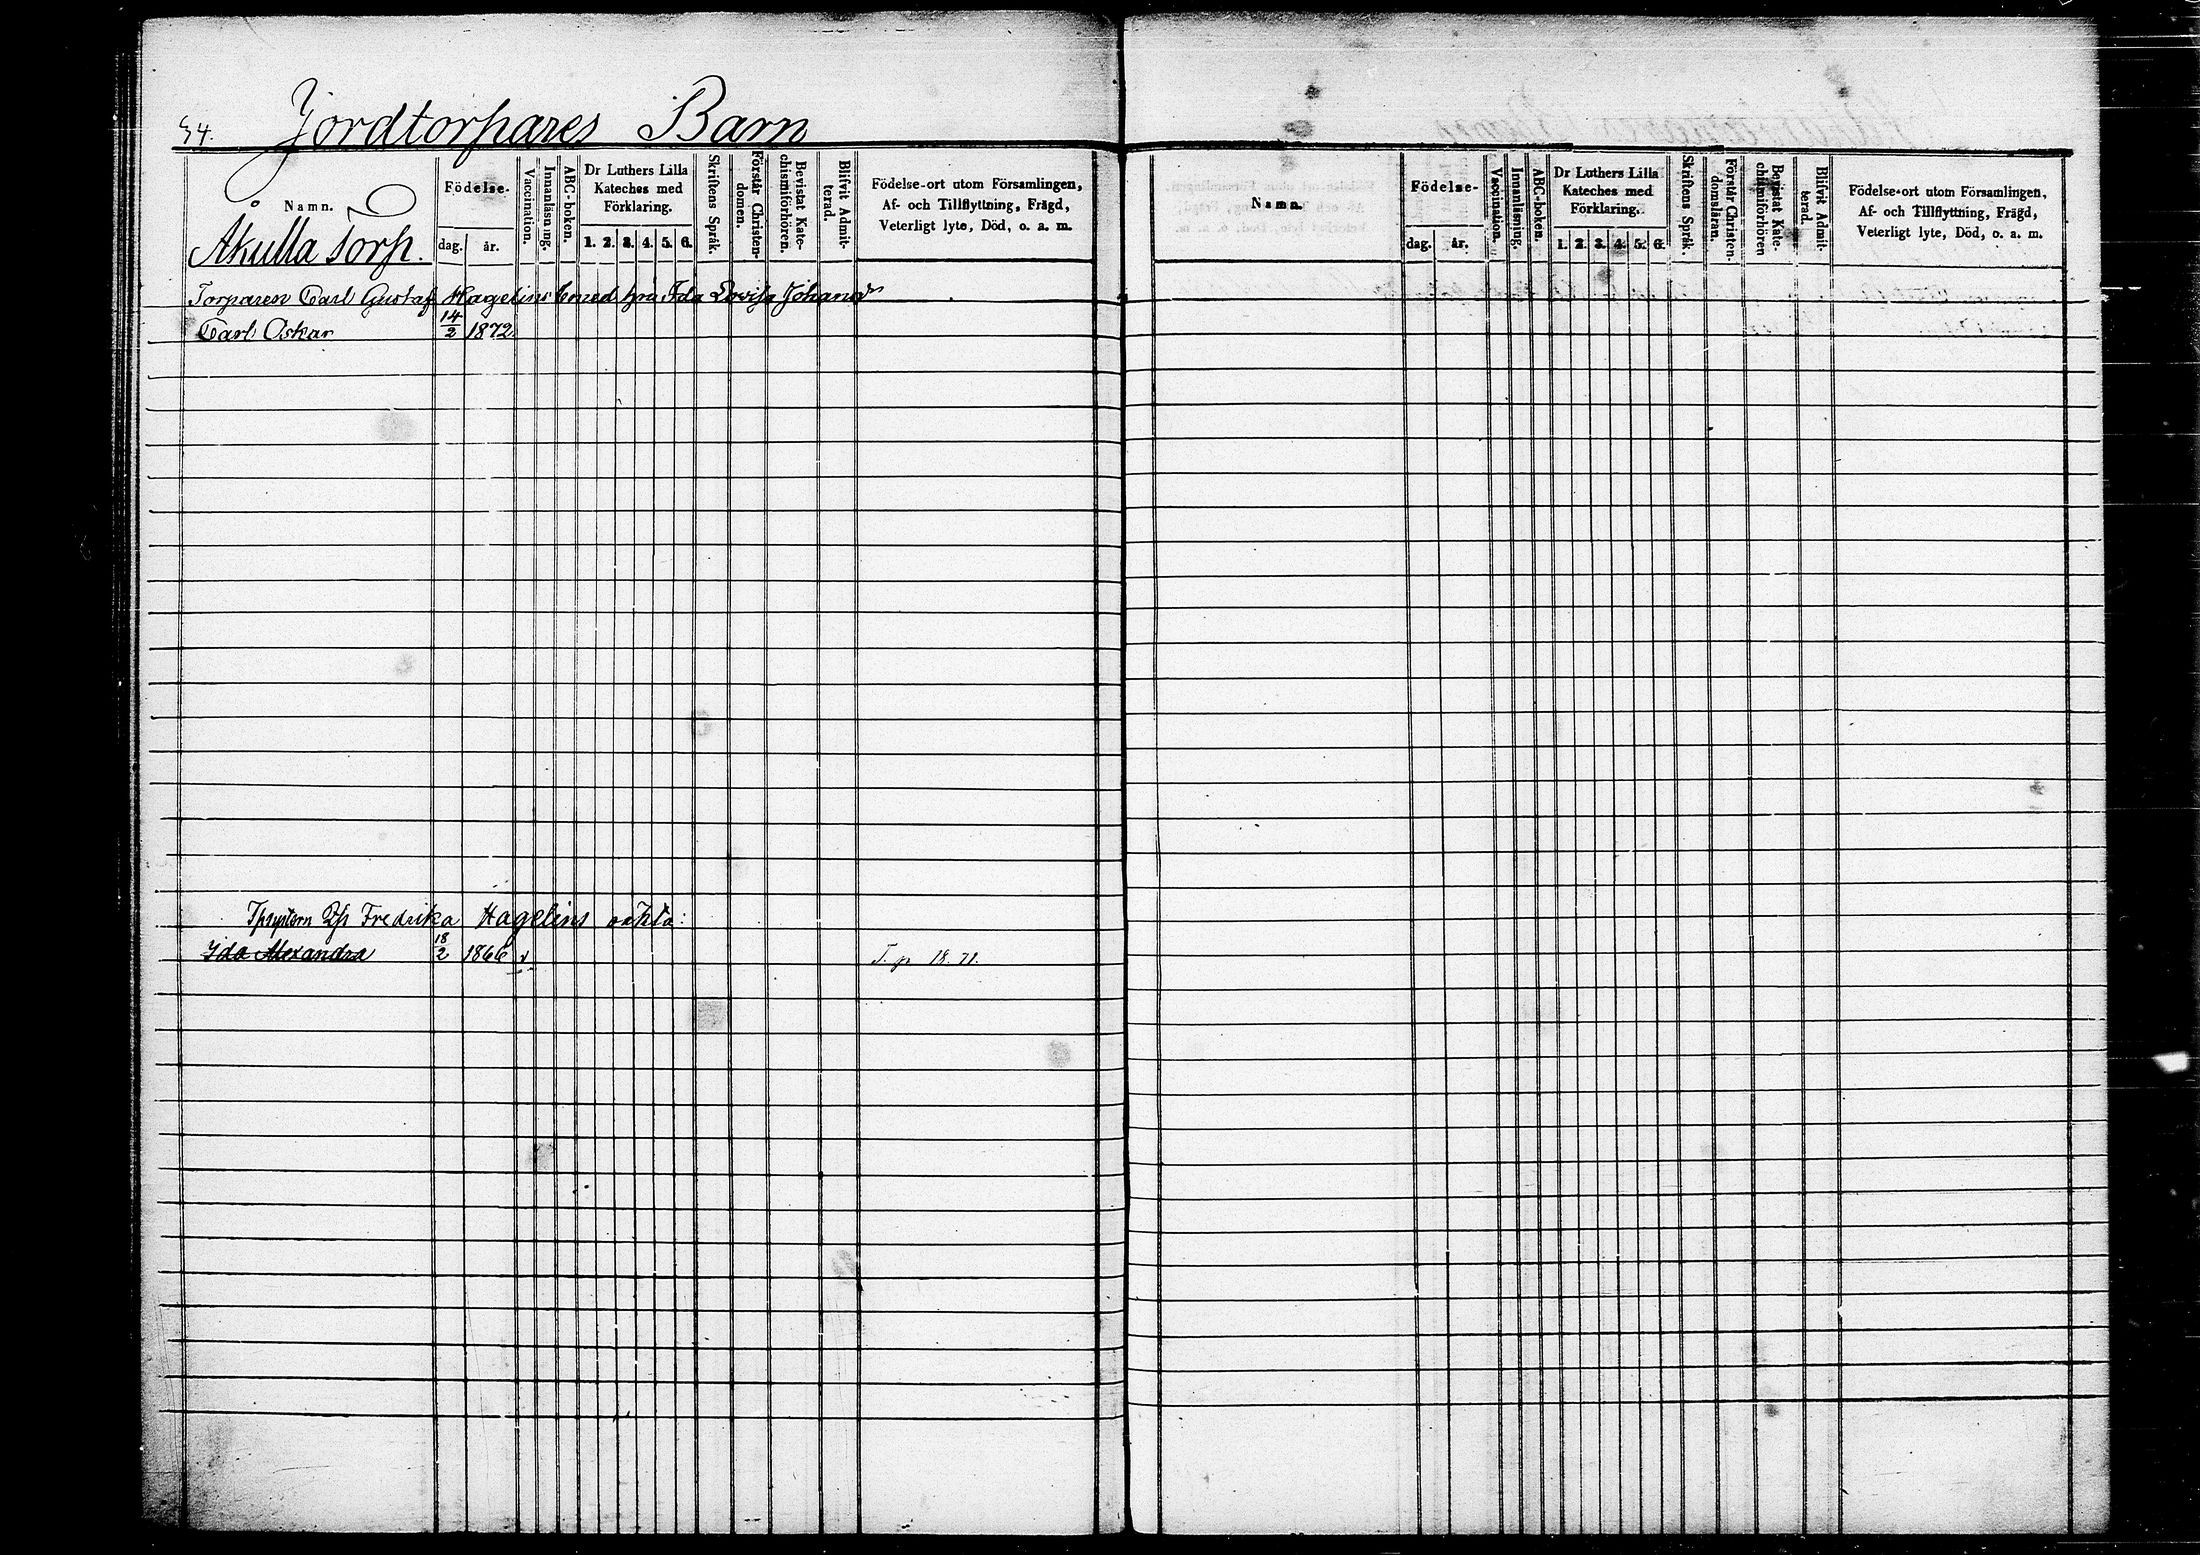 34.
Jordtorpares Barn
Namn.
Åkulla Torp.
Födelse-
dag. år.
Vaccination.
Innanläsning.
ABC-boken.
Dr Luthers Lilla
Kateches med
Förklaring.
1. 2. 3. 4. 5. 6.
Skriftens Språk.
Förstår Christen-
domen.
Bevistat Kate-
chismiförhören.
Blifvit Admit-
terad.
Födelse-ort utom Församlingen,
Af- och Tillflyttning, Frägd,
Veterligt lyte, Död, o. a. m.
Torparen Carl Gustaf Hagelins med hru Ida Lovisa Johansdr
Carl Oskar 14/2 1872.
Fredrika Hagelins oäkta:
Ida Alexandra 18/2 1866 v T. p 18. 71.
Namn.
Födelse-
dag. år.
Vaccination.
Innanläsning.
ABC-boken.
Dr Luthers Lilla
Kateches med
Förklaring.
1. 2. 3. 4. 5. 6.
Skriftens Språk.
Förstår Christen-
domsläran.
Bevistat Kate-
chismiförhören
Blifvit Admit-
terad.
Födelse-ort utom Församlingen,
Af- och Tillflyttning, Frägd,
Veterligt lyte, Död, o. a. m.